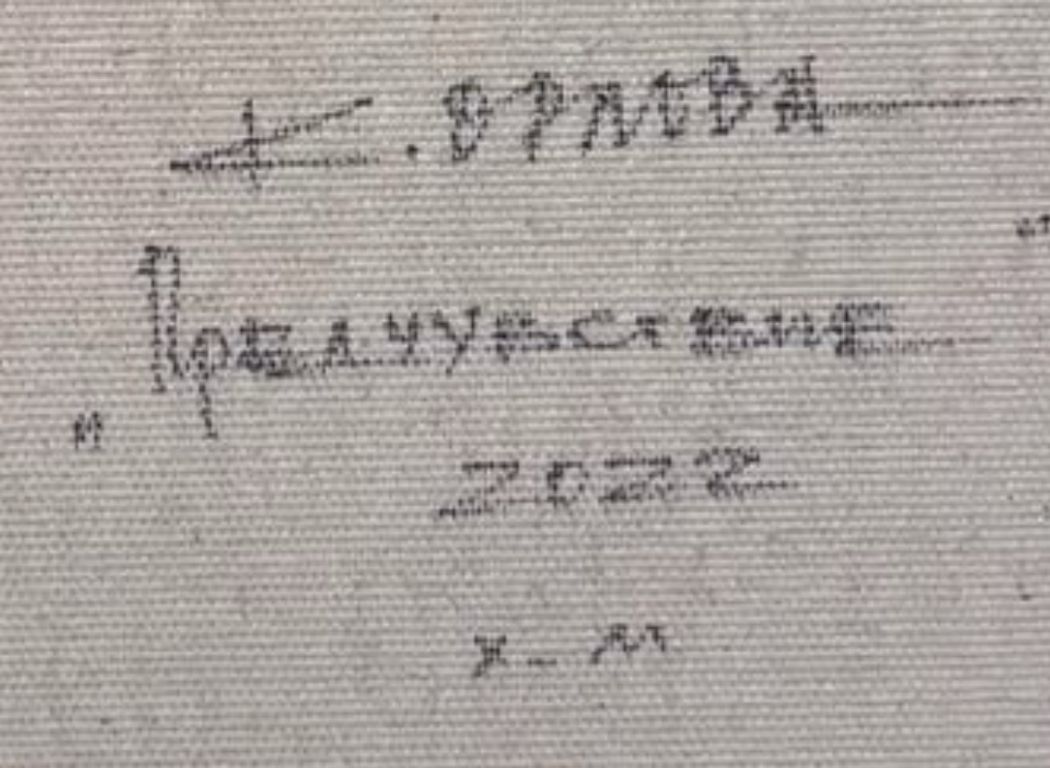 А. Орлова
"Предчувствие"
2022
х. м